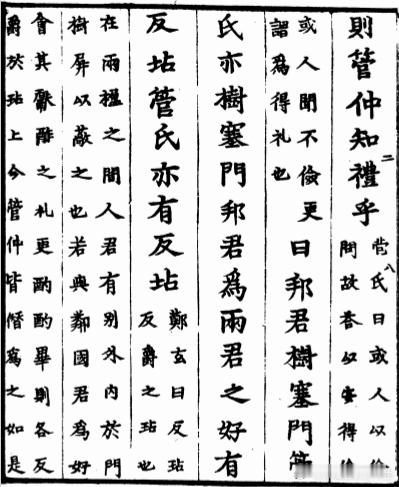 則管仲知禮乎
二
八
氏曰或人以儉
問故荅以安得儉
或人聞不儉更
謂爲得礼也
曰邦君樹塞門管
氏亦樹塞門邦君爲兩君之好有
反坫管氏亦有反坫
鄭玄曰反坫
反爵之坫也
在兩楹之間人君有别外内於門
樹屏以蔽之也若與鄰國君爲好
會其獻酢之礼更酌酌畢則各反
爵於坫上今管仲皆僭爲之如是